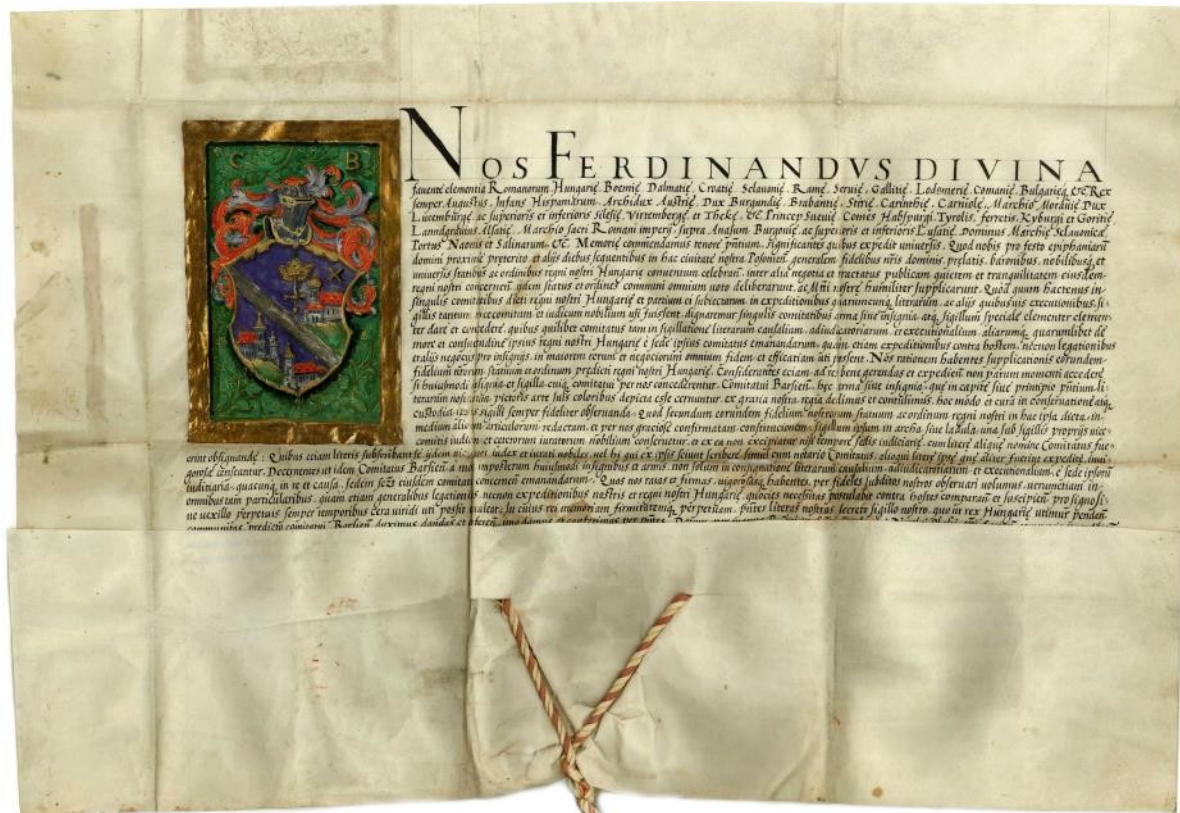 C B
NOS FERDINANDVS DIVINA
favente clementia Romanorum Hungarię, Boemię, Dalmatię, Croatię, Sclavonię, Ramę, Servię, Gallitię, Lodomerię, Comanię, Bulgarięq, &c Rex
semper Augustus, Infans Hispaniarum, Archidux Austrię, Dux Burgundię, Brabantię, Stirię, Carinthię, Carniolę, Marchio Moravię Dux
Lucemburgę ac superioris et inferioris Silesię, Virtembergę, et Thekę, &c Princeps Suevię, Comes Habspurgi, Tyrolis, ferretis, Kyburgi et Goritię,
Lanndgravius Alsatię, Marchio sacri Romani imperij supra Anasum Burgovię, ac superioris et inferioris Lusatię, Dominus Marchię Sclavonicę
Portus Naonis et Salinarum, &c. Memorię commendamus tenore pñtium, significantes quibus expedit universis. Quod nobis pro festo epiphaniarũ
domini proxime preterito et alijs diebus sequentibus in hac civitate nostra Posonieñ generalem fidelibus ñris dominis, prelatis, baronibus, nobilibusq, et
universis statibus ac ordinibus regni nostri Hungarię conventum celebrañ, inter alia negotia et tractatus publicam quietem et tranquilitatem eiusdem
regni nostri concerneñ ijdem status et ordines communi omnium voto deliberarunt, ac Mti nostrę humiliter supplicarunt. Quod quum hactenus in
singulis comitatibus dicti regni nostri Hungarię et partium ei subiectarum in expeditionibus quarumcunq literarum, ac alijs quibusvis executionibus, si-
gillis tantum vicecomitum et iudicum nobilium usi fuissent, dignaremur singulis comitatibus arma sive insignia, atq sigillum speciale clementer
dare et concedere, quibus quilibet comitatus tam in sigillatione literarum causalium, adiudicatoriarum, et executionalium, aliarumq quarumlibet de
more et consuetudine ipsius regni nostri Hungarię e sede ipsius comitatus emanandarum, quam etiam expeditionibus contra hostem, necnon legationibus
et alijs negocijs pro insignijs, in maiorem rerum et negociorum omnium fidem et efficatiam uti possent. Nos rationem habentes supplicationis eorundem
fidelium nrorum statuum et ordinum predicti regni nostri Hungarię, Considerantes eciam ad res bene gerendas et expedieñ non parum momenti accedere
si huiusmodi insignia et sigilla cuiq comitatui per nos concederentur, Comitatui Barsieñ. hęc arma sive insignia, quę in capite sive principio pñtium li-
terarum nostrarum pictoris arte suis coloribus depicta esse cernuntur, ex gratia nostra regia dedimus et contulimus, hoc modo et cura in conservatione atq
custodia sigilli semper fideliter observanda. Quod secundum eorundem fidelium nostrorum statuum ac ordinum regni nostri in hac ipsa dicta, in
medium articulorum redactam, et per nos graciose confirmatam constitucionem, sigillum ipsum in archa sive ladula una sub sigillis proprijs vice-
comitis iudicum et ceterorum iuratorum nobilium conservetur, et ex ea non excipiatur nisi tempore sedis iudiciarię, cum literę alique nomine Comitatus fue-
rint obsignandę: Quibus eciam literis subscribant se ijdem iudex et iurati nobiles, vel hi qui ex ipsis sciunt scribere, simul cum notario Comitatus, alioqui literę ipsę quę aliter fuerint expeditę, invi-
gorosę censeantur. Decernentes ut idem Comitatus Barsieñ a modo imposterum huiusmodi insignibus et armis, non solum in consignatione literarum causalium, adiudicatoriarum, et executionalium, e sede ipsorũ
iuditiaria, quacunq in re et causa, sedem scz eiusdem comitatus concerneñ emanandarum. Quas nos ratas et firmas, vigorosasq habentes, per fideles subditos nostros observari volumus, verumetiam in
omnibus tam particularibus, quam etiam generalibus legationibus, necnon expeditionibus nostris et regni nostri Hungarię, quocies necessitas postulabit contra hostes comparañ et suscipieñ pro signo si-
ve vexillo perpetuis semper temporibus cera viridi uti possit, valeat. In cuius rei memoriam firmitatemq perpetuam, pñtes literas nostras secreto sigillo nostro, quo ut rex Hungarię utimur pendeñ